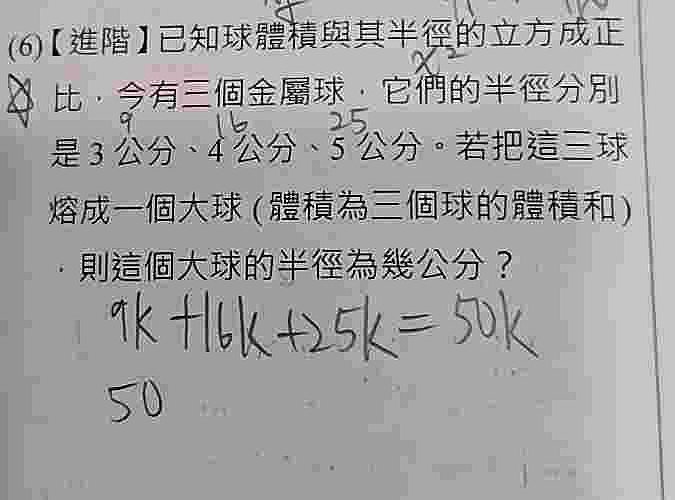 (6)【進階】已知球體積與其半徑的立方成正
x²
比，今有三個金屬球，它們的半徑分別
9 16 25
是3公分、4公分、5公分。若把這三球
熔成一個大球(體積為三個球的體積和)
，則這個大球的半徑為幾公分？
9k+16k+25k=50k
50